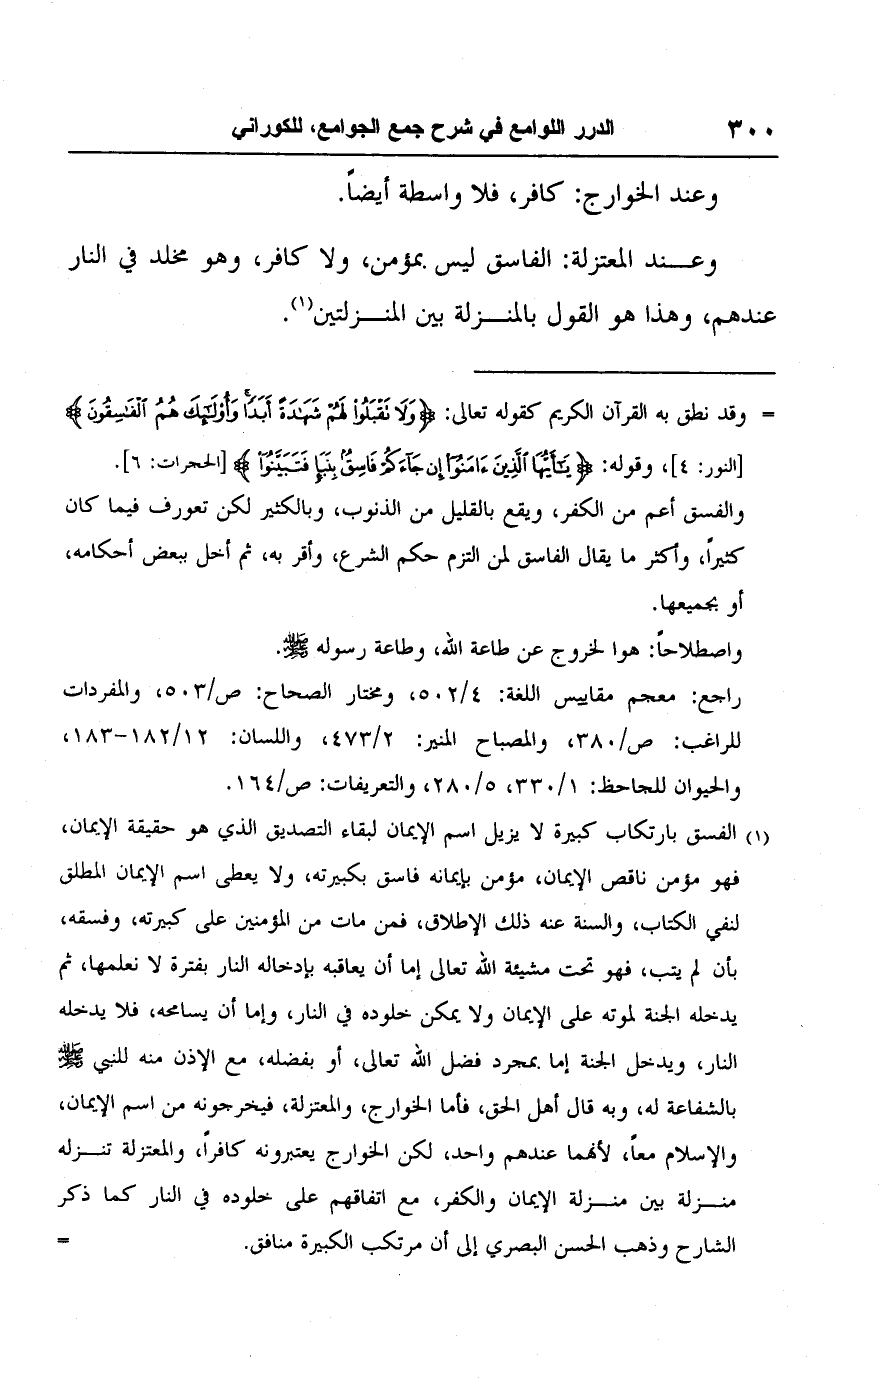 ٣٠٠ الدرر اللوامع في شرح جمع الجوامع، للكوراني
وعند الخوارج: كافر، فلا واسطة أيضاً.
وعـــند المعتزلة: الفاسق ليس بمؤمن، ولا كافر، وهو مخلد في النار
عندهم، وهذا هو القول بالمنـــزلة بين المنـــزلتين(١).
= وقد نطق به القرآن الكريم كقوله تعالى: ﴿وَلَا تَقْبَلُوا۟ لَهُمْ شَهَٰدَةً أَبَدًا ۚ وَأُو۟لَٰٓئِكَ هُمُ ٱلْفَٰسِقُونَ﴾
[النور: ٤]، وقوله: ﴿يَٰٓأَيُّهَا ٱلَّذِينَ ءَامَنُوٓا۟ إِن جَآءَكُمْ فَاسِقٌۢ بِنَبَإٍ فَتَبَيَّنُوٓا۟﴾ [الحجرات: ٦].
والفسق أعم من الكفر، ويقع بالقليل من الذنوب، وبالكثير لكن تعورف فيما كان
كثيراً، وأكثر ما يقال الفاسق لمن التزم حكم الشرع، وأقر به، ثم أخل ببعض أحكامه،
أو بجميعها.
واصطلاحاً: هوا لخروج عن طاعة الله، وطاعة رسوله ﷺ.
راجع: معجم مقاييس اللغة: ٥٠٢/٤، ومختار الصحاح: ص/٥٠٣، والمفردات
للراغب: ص/٣٨٠، والمصباح المنير: ٤٧٣/٢، واللسان: ١٨٢/١٢-١٨٣،
والحيوان للجاحظ: ٣٣٠/١، ٢٨٠/٥، والتعريفات: ص/١٦٤.
(١) الفسق بارتكاب كبيرة لا يزيل اسم الإيمان لبقاء التصديق الذي هو حقيقة الإيمان،
فهو مؤمن ناقص الإيمان، مؤمن بإيمانه فاسق بكبيرته، ولا يعطى اسم الإيمان المطلق
لنفي الكتاب، والسنة عنه ذلك الإطلاق، فمن مات من المؤمنين على كبيرته، وفسقه،
بأن لم يتب، فهو تحت مشيئة الله تعالى إما أن يعاقبه بإدخاله النار بفترة لا نعلمها، ثم
يدخله الجنة لموته على الإيمان ولا يمكن خلوده في النار، وإما أن يسامحه، فلا يدخله
النار، ويدخل الجنة إما بمجرد فضل الله تعالى، أو بفضله، مع الإذن منه للنبي ﷺ
بالشفاعة له، وبه قال أهل الحق، فأما الخوارج، والمعتزلة، فيخرجونه من اسم الإيمان،
والإسلام معاً، لأنهما عندهم واحد، لكن الخوارج يعتبرونه كافراً، والمعتزلة تنـــزله
منـــزلة بين منـــزلة الإيمان والكفر، مع اتفاقهم على خلوده في النار كما ذكر
الشارح وذهب الحسن البصري إلى أن مرتكب الكبيرة منافق. =